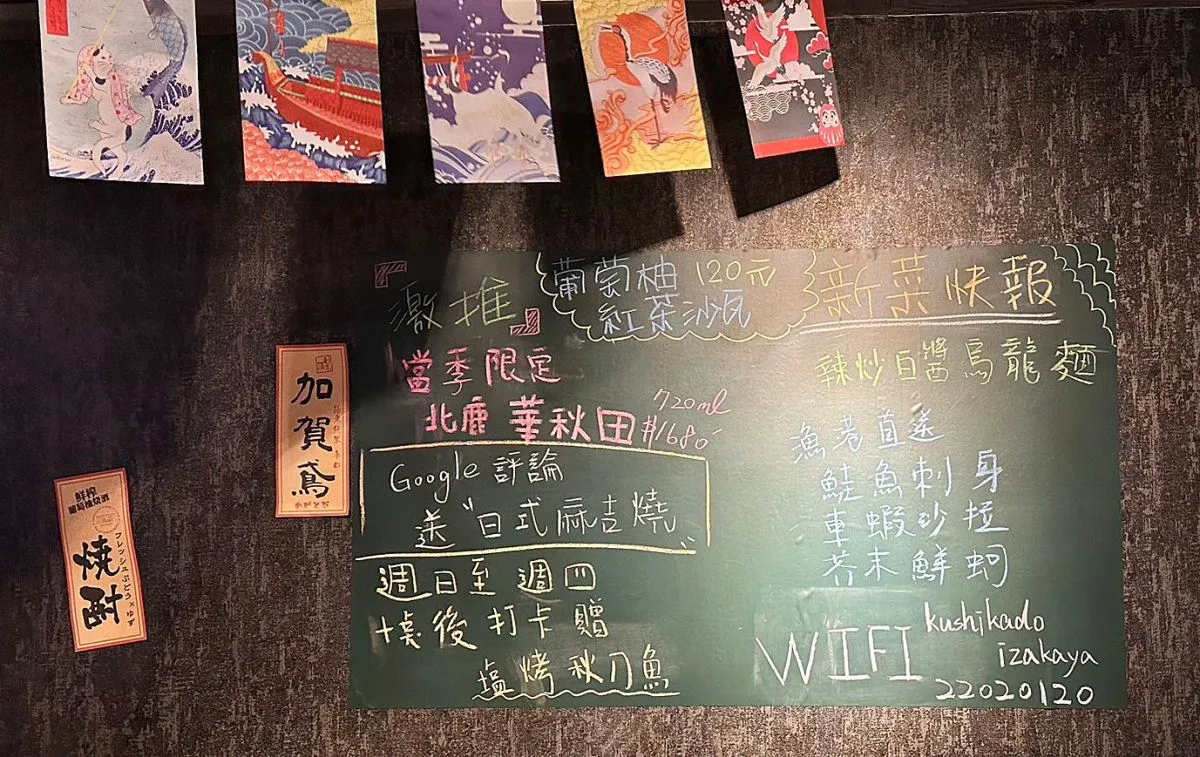 激推
當季限定
北鹿 華秋田
720ml
$1680
Google 評論
送"日式麻吉燒"
週日至週四
後打卡贈
塩烤秋刀魚
葡萄柚 120元
紅茶沙瓦
新菜快報
辣炒白醬烏龍麵
漁港直送
鮭魚刺身
車蝦沙拉
芥末鮮蚵
WIFI
kushikado
izakaya
22020120
加賀鳶
かがとび
鮮榨
焼酎
フレッシュぶどう×ゆず